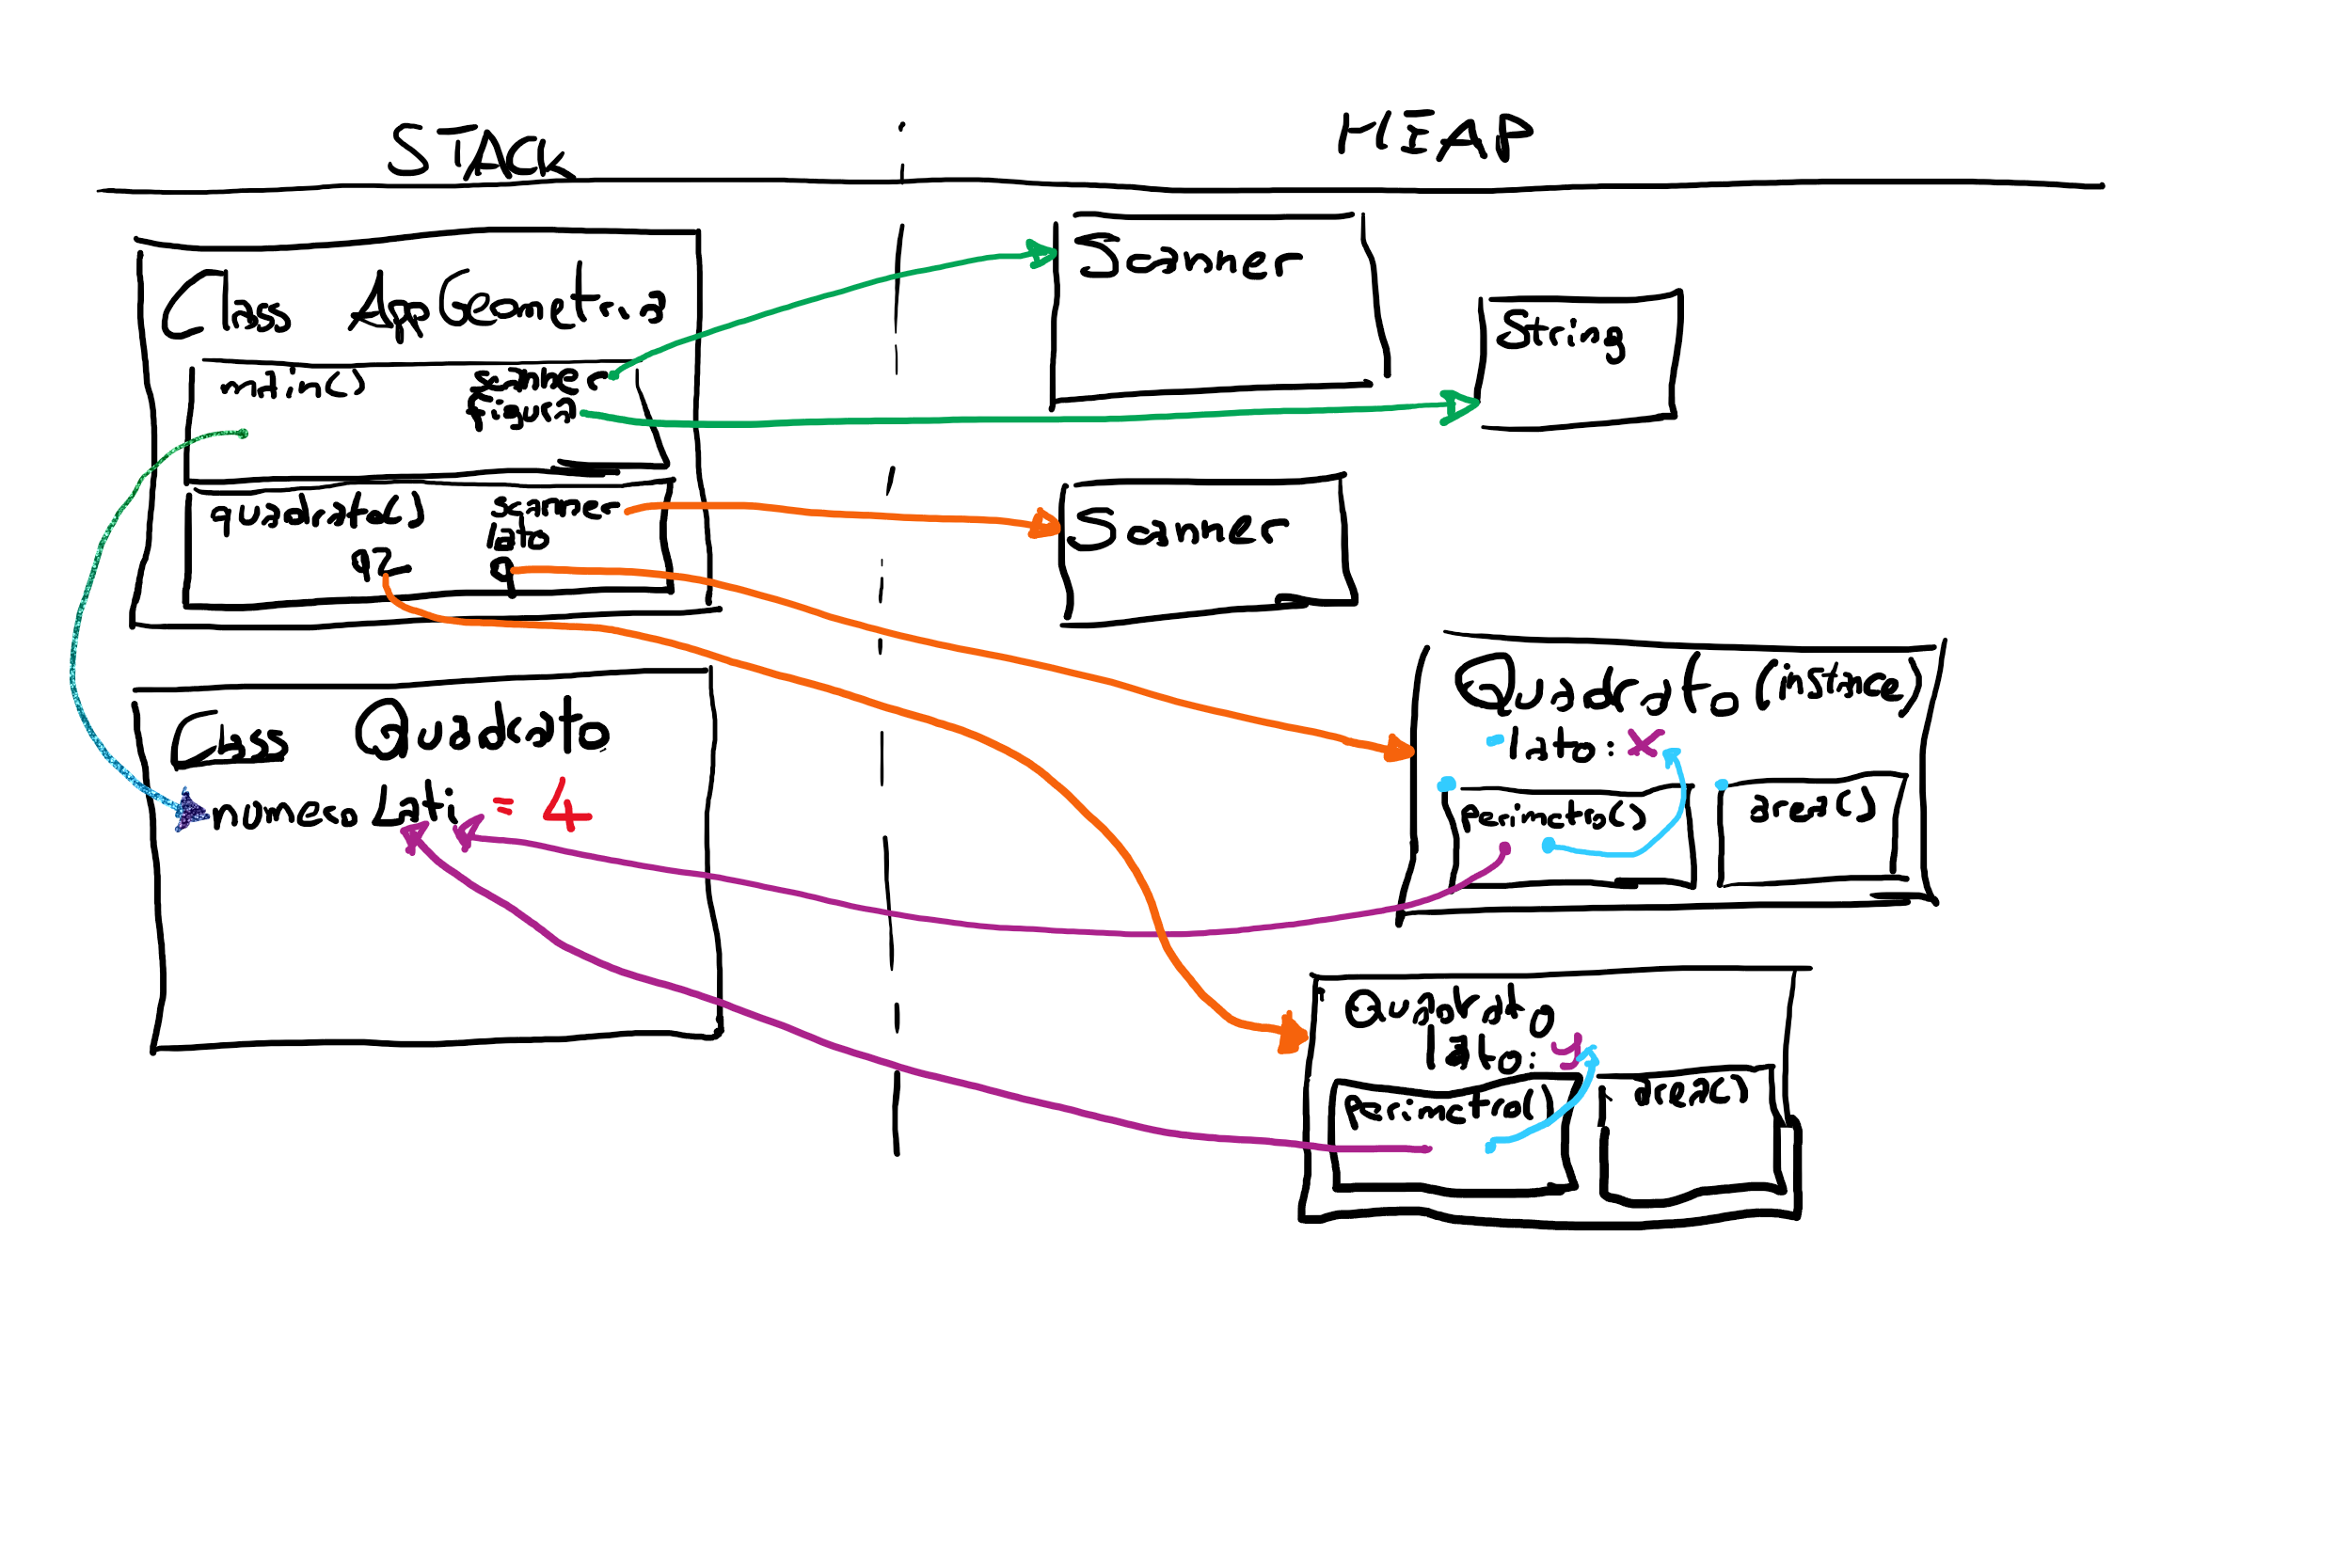 STACK
HEAP
Class AppGeometria
main()
scanner
figura
quadrato()
scanner
lato
q2
q
Class Quadrato
numeroLati = 4
Scanner
String
Scanner
Quadrato (instance)
lato: x
perimetro()
area()
Quadrato
lato: y
perimetro()
area()